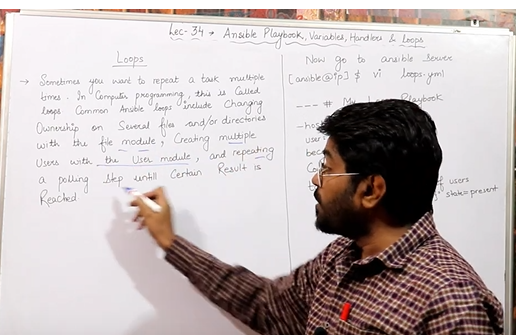 Lec-34 → Ansible Playbook, Variables, Handlers & loops
Loops
→ Sometimes you want to repeat a task multiple
times. In Computer programming, this is Called
loops Common Ansible loops include Changing
Ownership on Several files and/or directories
with the file module, Creating multiple
Users with the User module, and repeating
a polling Step untill Certain Result is
Reached
Now go to ansible server
[ansible@ip] $ vi loops.yml
--- # My Playbook
users
state=present